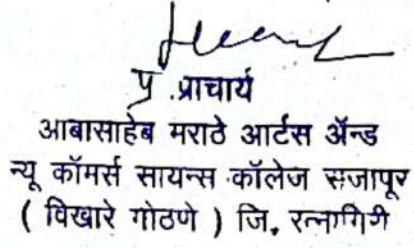 प्र.प्राचार्य
आबासाहेब मराठे आर्टस ॲन्ड
न्यू कॉमर्स सायन्स कॉलेज राजापूर
( विखारे गोठणे ) जि. रत्नागिरी